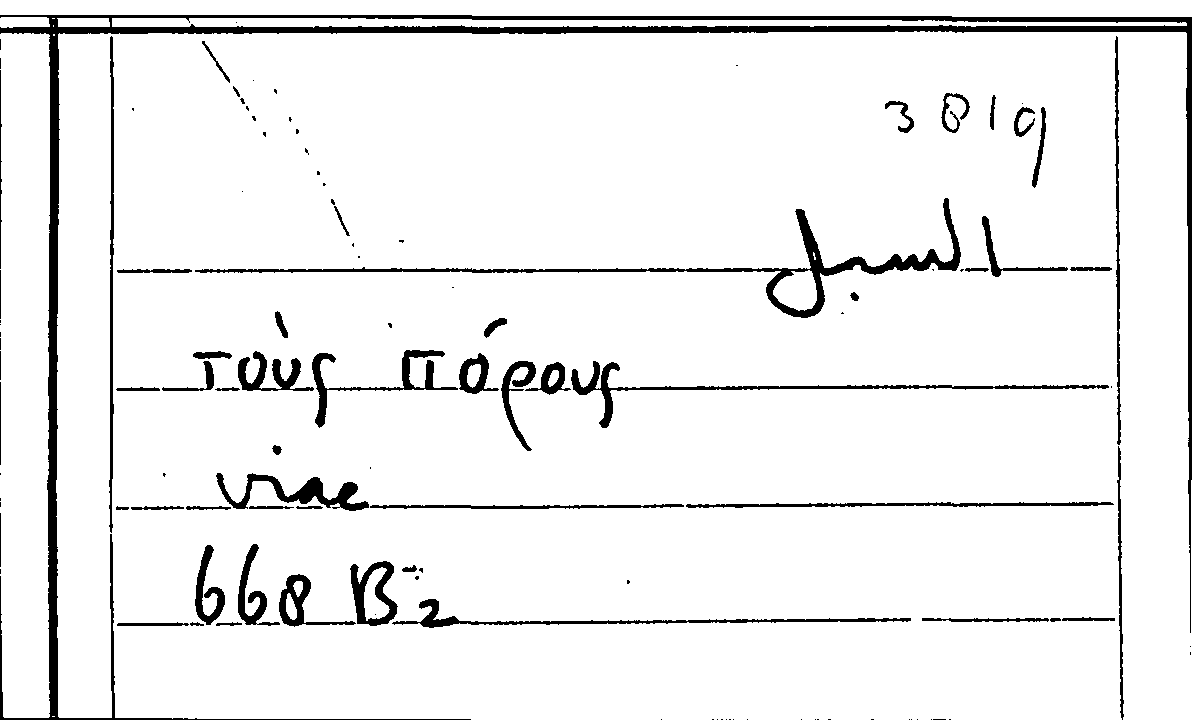 3819
τοὺς πόρους
viae
668 B 2